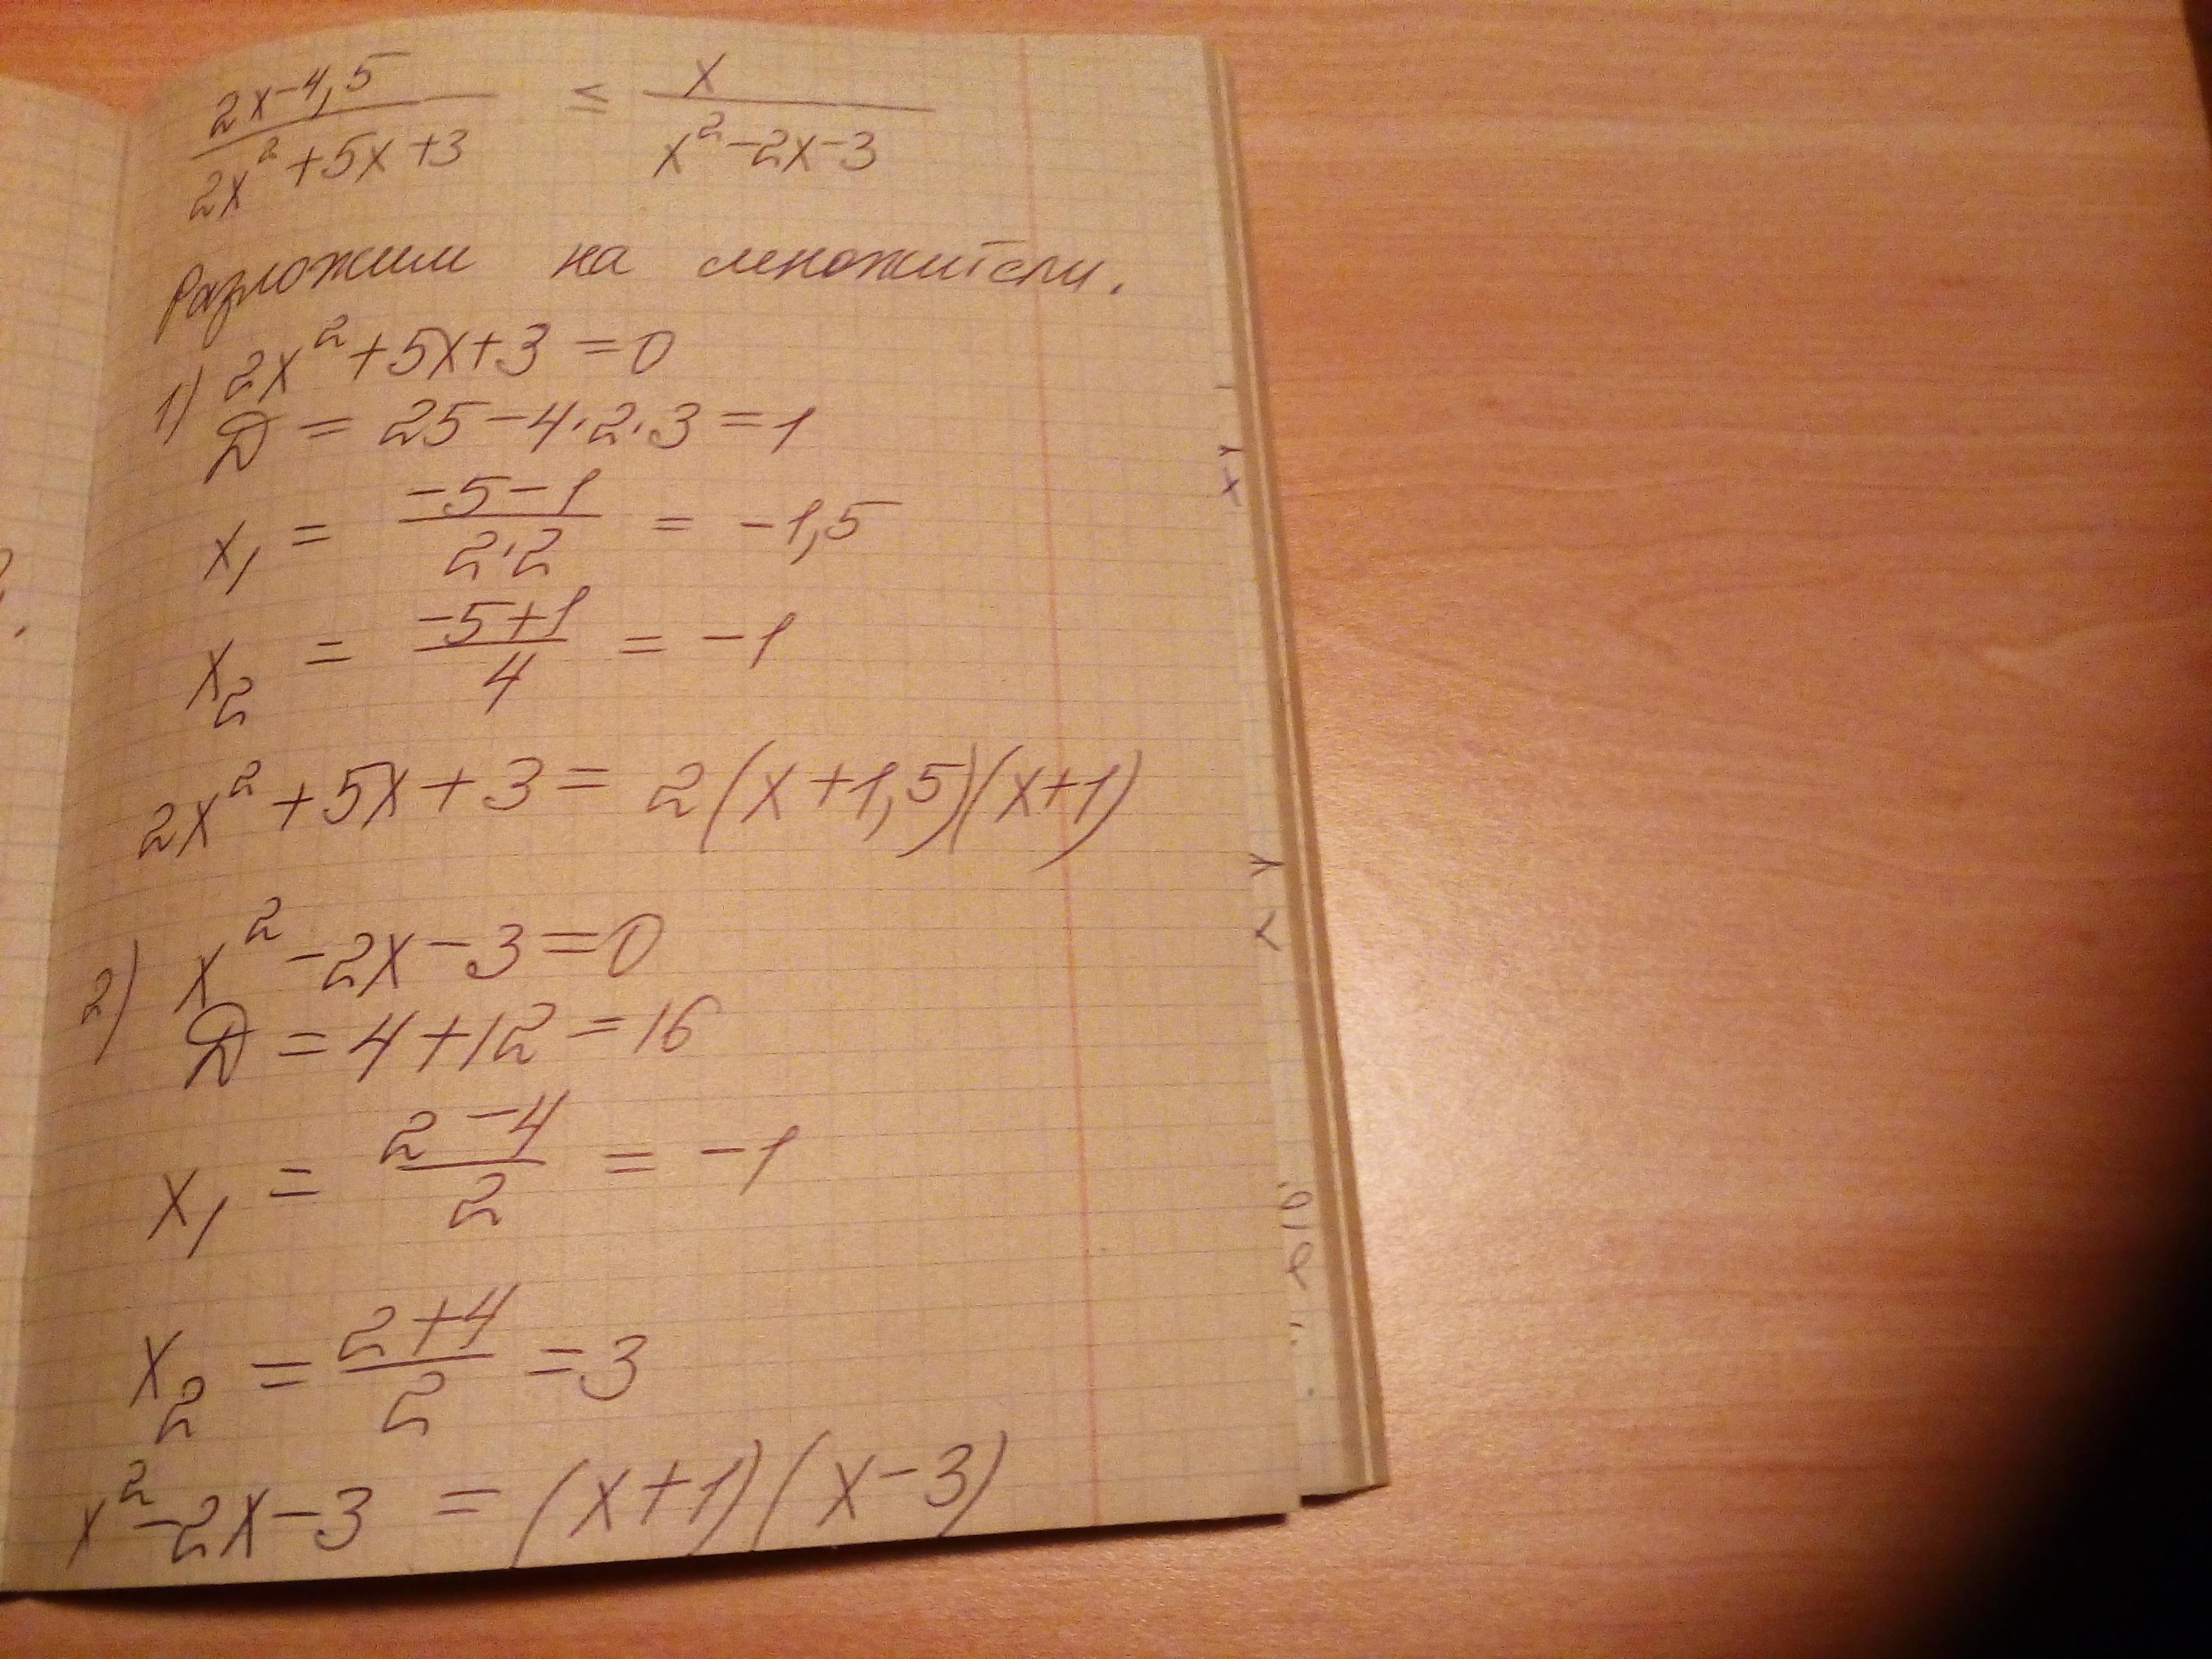 (2x-4,5)/(2x²+5x+3) ≤ x/(x²-2x-3)
Разложим на множители.
1) 2x²+5x+3=0
Д = 25-4·2·3=1
x₁ = (-5-1)/(2·2) = -1,5
x₂ = (-5+1)/4 = -1
2x²+5x+3= 2(x+1,5)(x+1)
2) x²-2x-3=0
Д=4+12=16
x₁ = (2-4)/2 = -1
x₂ = (2+4)/2 =3
x²-2x-3 = (x+1)(x-3)